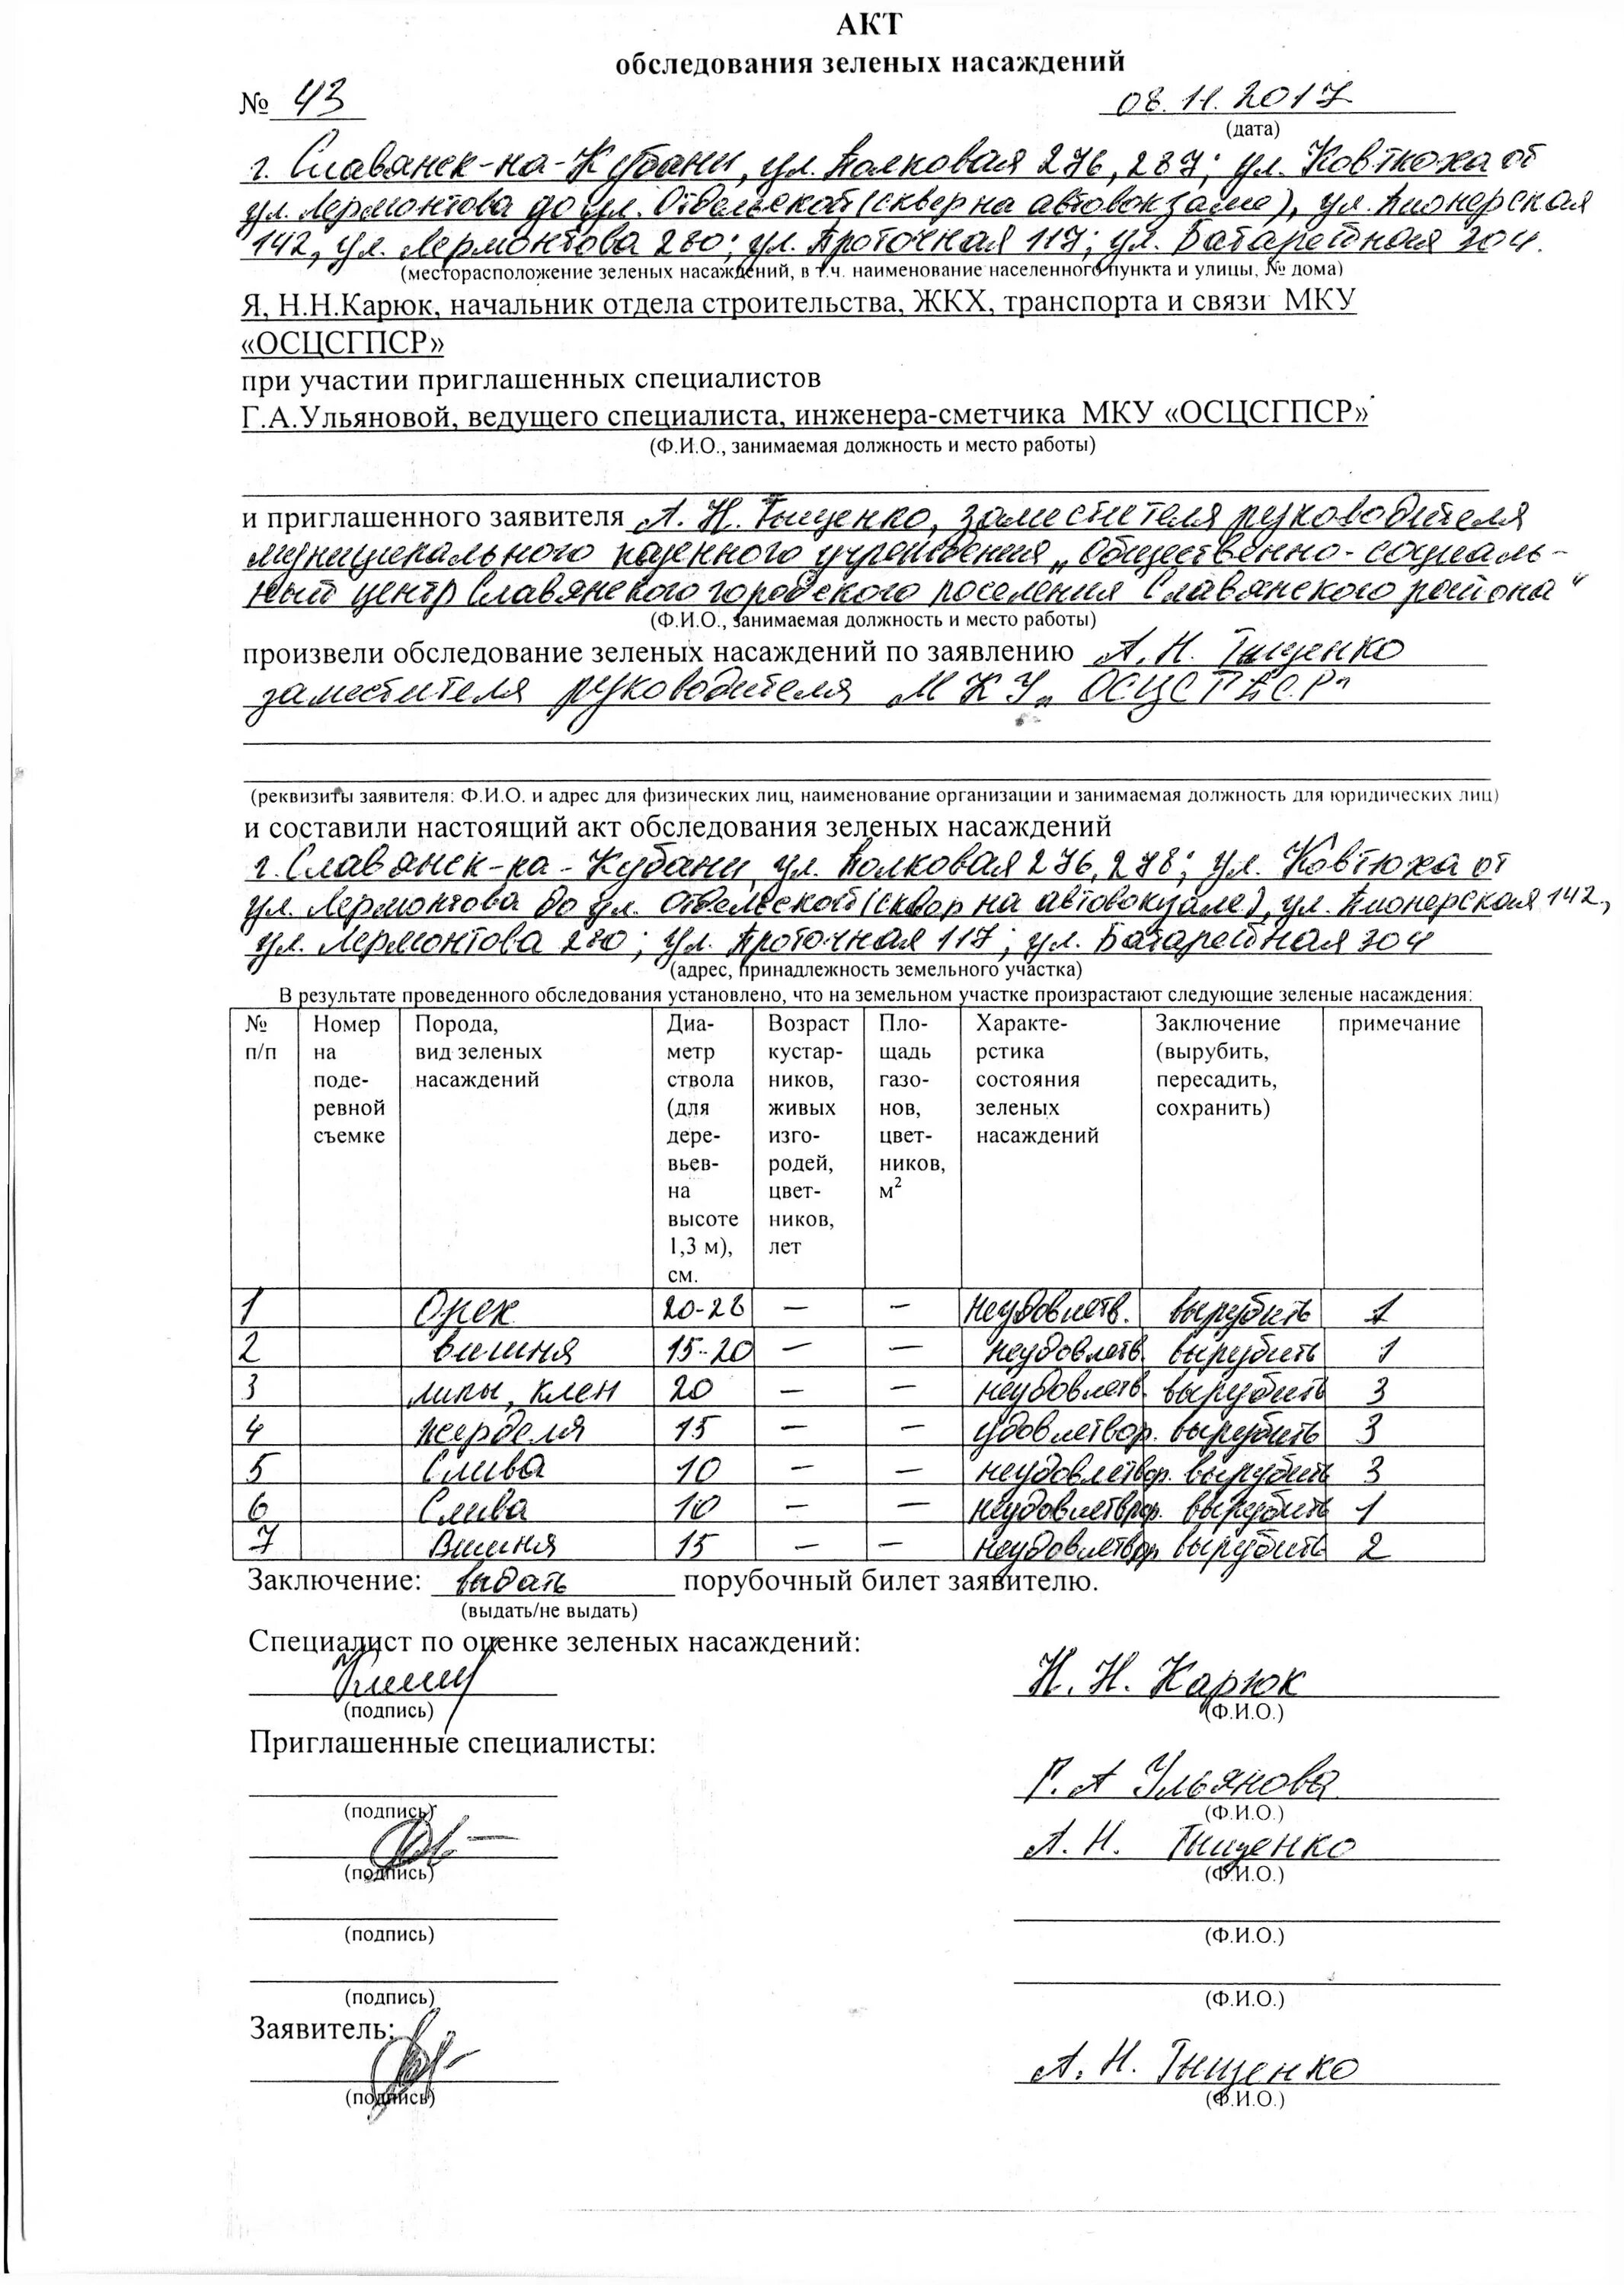 АКТ
обследования зеленых насаждений
№ 43 08.11.2017
(дата)
г. Славянск-на-Кубани, ул. Полковая 276, 287; ул. Ковтюха от
ул. Лермонтова до ул. Отдельской (сквер на автовокзале), ул. Пионерская
142, ул. Лермонтова 280; ул. Проточная 117; ул. Батарейная 304.
(месторасположение зеленых насаждений, в т.ч. наименование населенного пункта и улицы, № дома)
Я, Н.Н.Карюк, начальник отдела строительства, ЖКХ, транспорта и связи МКУ
«ОСЦСГПСР»
при участии приглашенных специалистов
Г.А.Ульяновой, ведущего специалиста, инженера-сметчика МКУ «ОСЦСГПСР»
(Ф.И.О., занимаемая должность и место работы)
и приглашенного заявителя А. Н. Тыщенко, заместителя руководителя
муниципального казенного учреждения „Общественно-социаль-
ный центр Славянского городского поселения Славянского района“
(Ф.И.О., занимаемая должность и место работы)
произвели обследование зеленых насаждений по заявлению А. Н. Тыщенко
заместителя руководителя МКУ „ОСЦСГПСР“
(реквизиты заявителя: Ф.И.О. и адрес для физических лиц, наименование организации и занимаемая должность для юридических лиц)
и составили настоящий акт обследования зеленых насаждений
г. Славянск-на-Кубани, ул. Полковая 276, 278; ул. Ковтюха от
ул. Лермонтова до ул. Отдельской (сквер на автовокзале), ул. Пионерская 142,
ул. Лермонтова 280; ул. Проточная 117; ул. Батарейная 304
(адрес, принадлежность земельного участка)
В результате проведенного обследования установлено, что на земельном участке произрастают следующие зеленые насаждения:
№ Номер Порода, Диа- Возраст Пло- Характе- Заключение примечание
п/п на вид зеленых метр кустар- щадь рстика (вырубить,
поде- насаждений ствола ников, газо- состояния пересадить,
ревной (для живых нов, зеленых сохранить)
съемке дере- изго- цвет- насаждений
вьев- родей, ников,
на цвет- м²
высоте ников,
1,3 м), лет
см.
1 Орех 20-28 — — неудовлетв. вырубить 1
2 вишня 15-20 — — неудовлетв. вырубить 1
3 липы, клен 20 — — неудовлетв. вырубить 3
4 жерделя 15 — — удовлетвор. вырубить 3
5 Слива 10 — — неудовлетвор. вырубить 3
6 Слива 10 — — неудовлетвор. вырубить 1
7 Вишня 15 — — неудовлетвор вырубить 2
Заключение: выдать порубочный билет заявителю.
(выдать/не выдать)
Специалист по оценке зеленых насаждений:
Н. Н. Карюк
(подпись) (Ф.И.О.)
Приглашенные специалисты:
Г. А Ульянова
(подпись) (Ф.И.О.)
А. Н. Тыщенко
(подпись) (Ф.И.О.)
(подпись) (Ф.И.О.)
(подпись) (Ф.И.О.)
Заявитель:
А. Н. Тыщенко
(подпись) (Ф.И.О.)